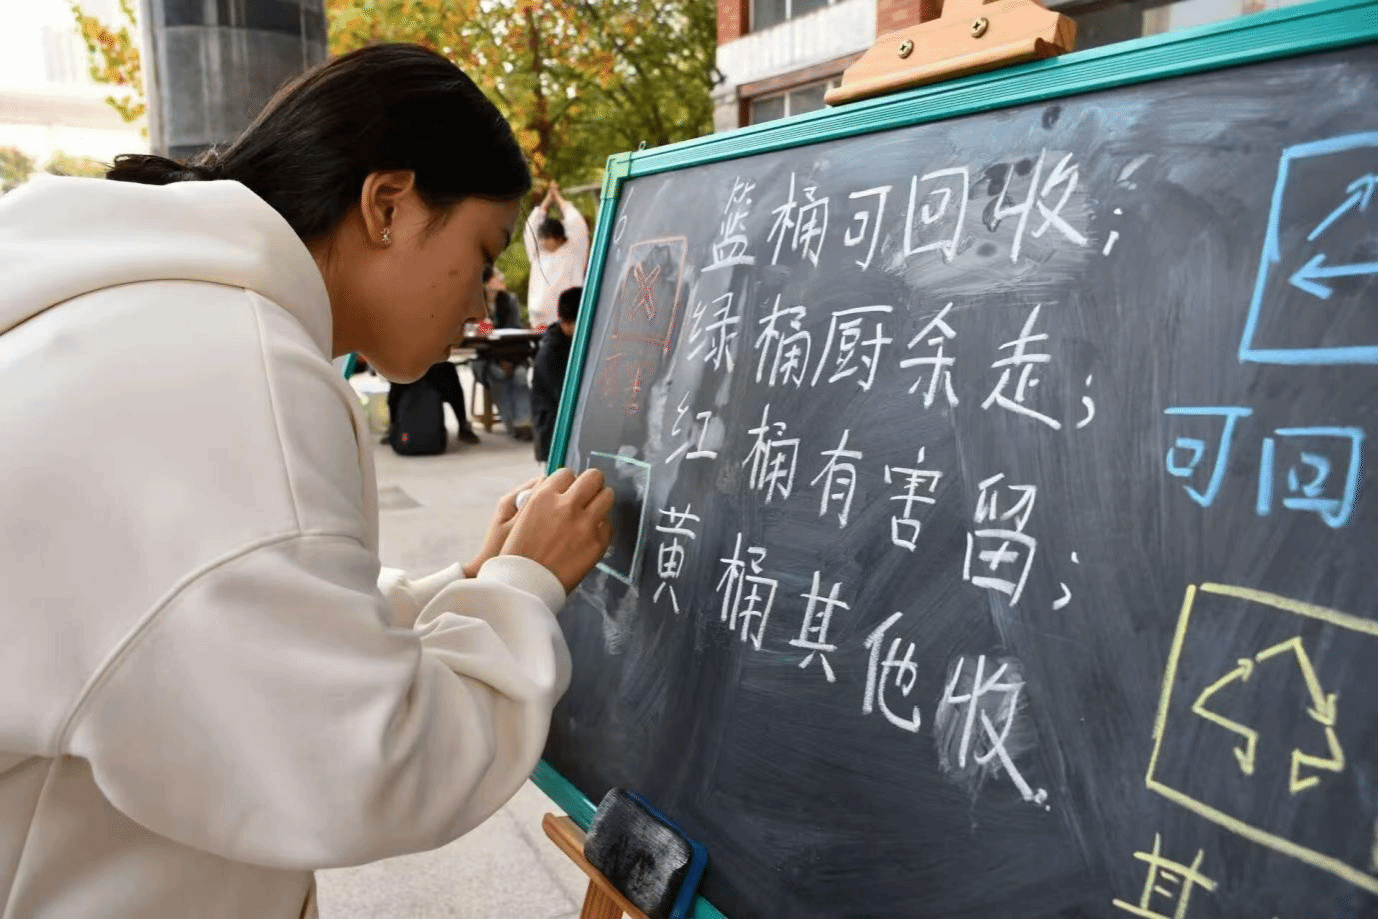 篮桶可回收；
绿桶厨余走；
红桶有害留；
黄桶其他收.
可回